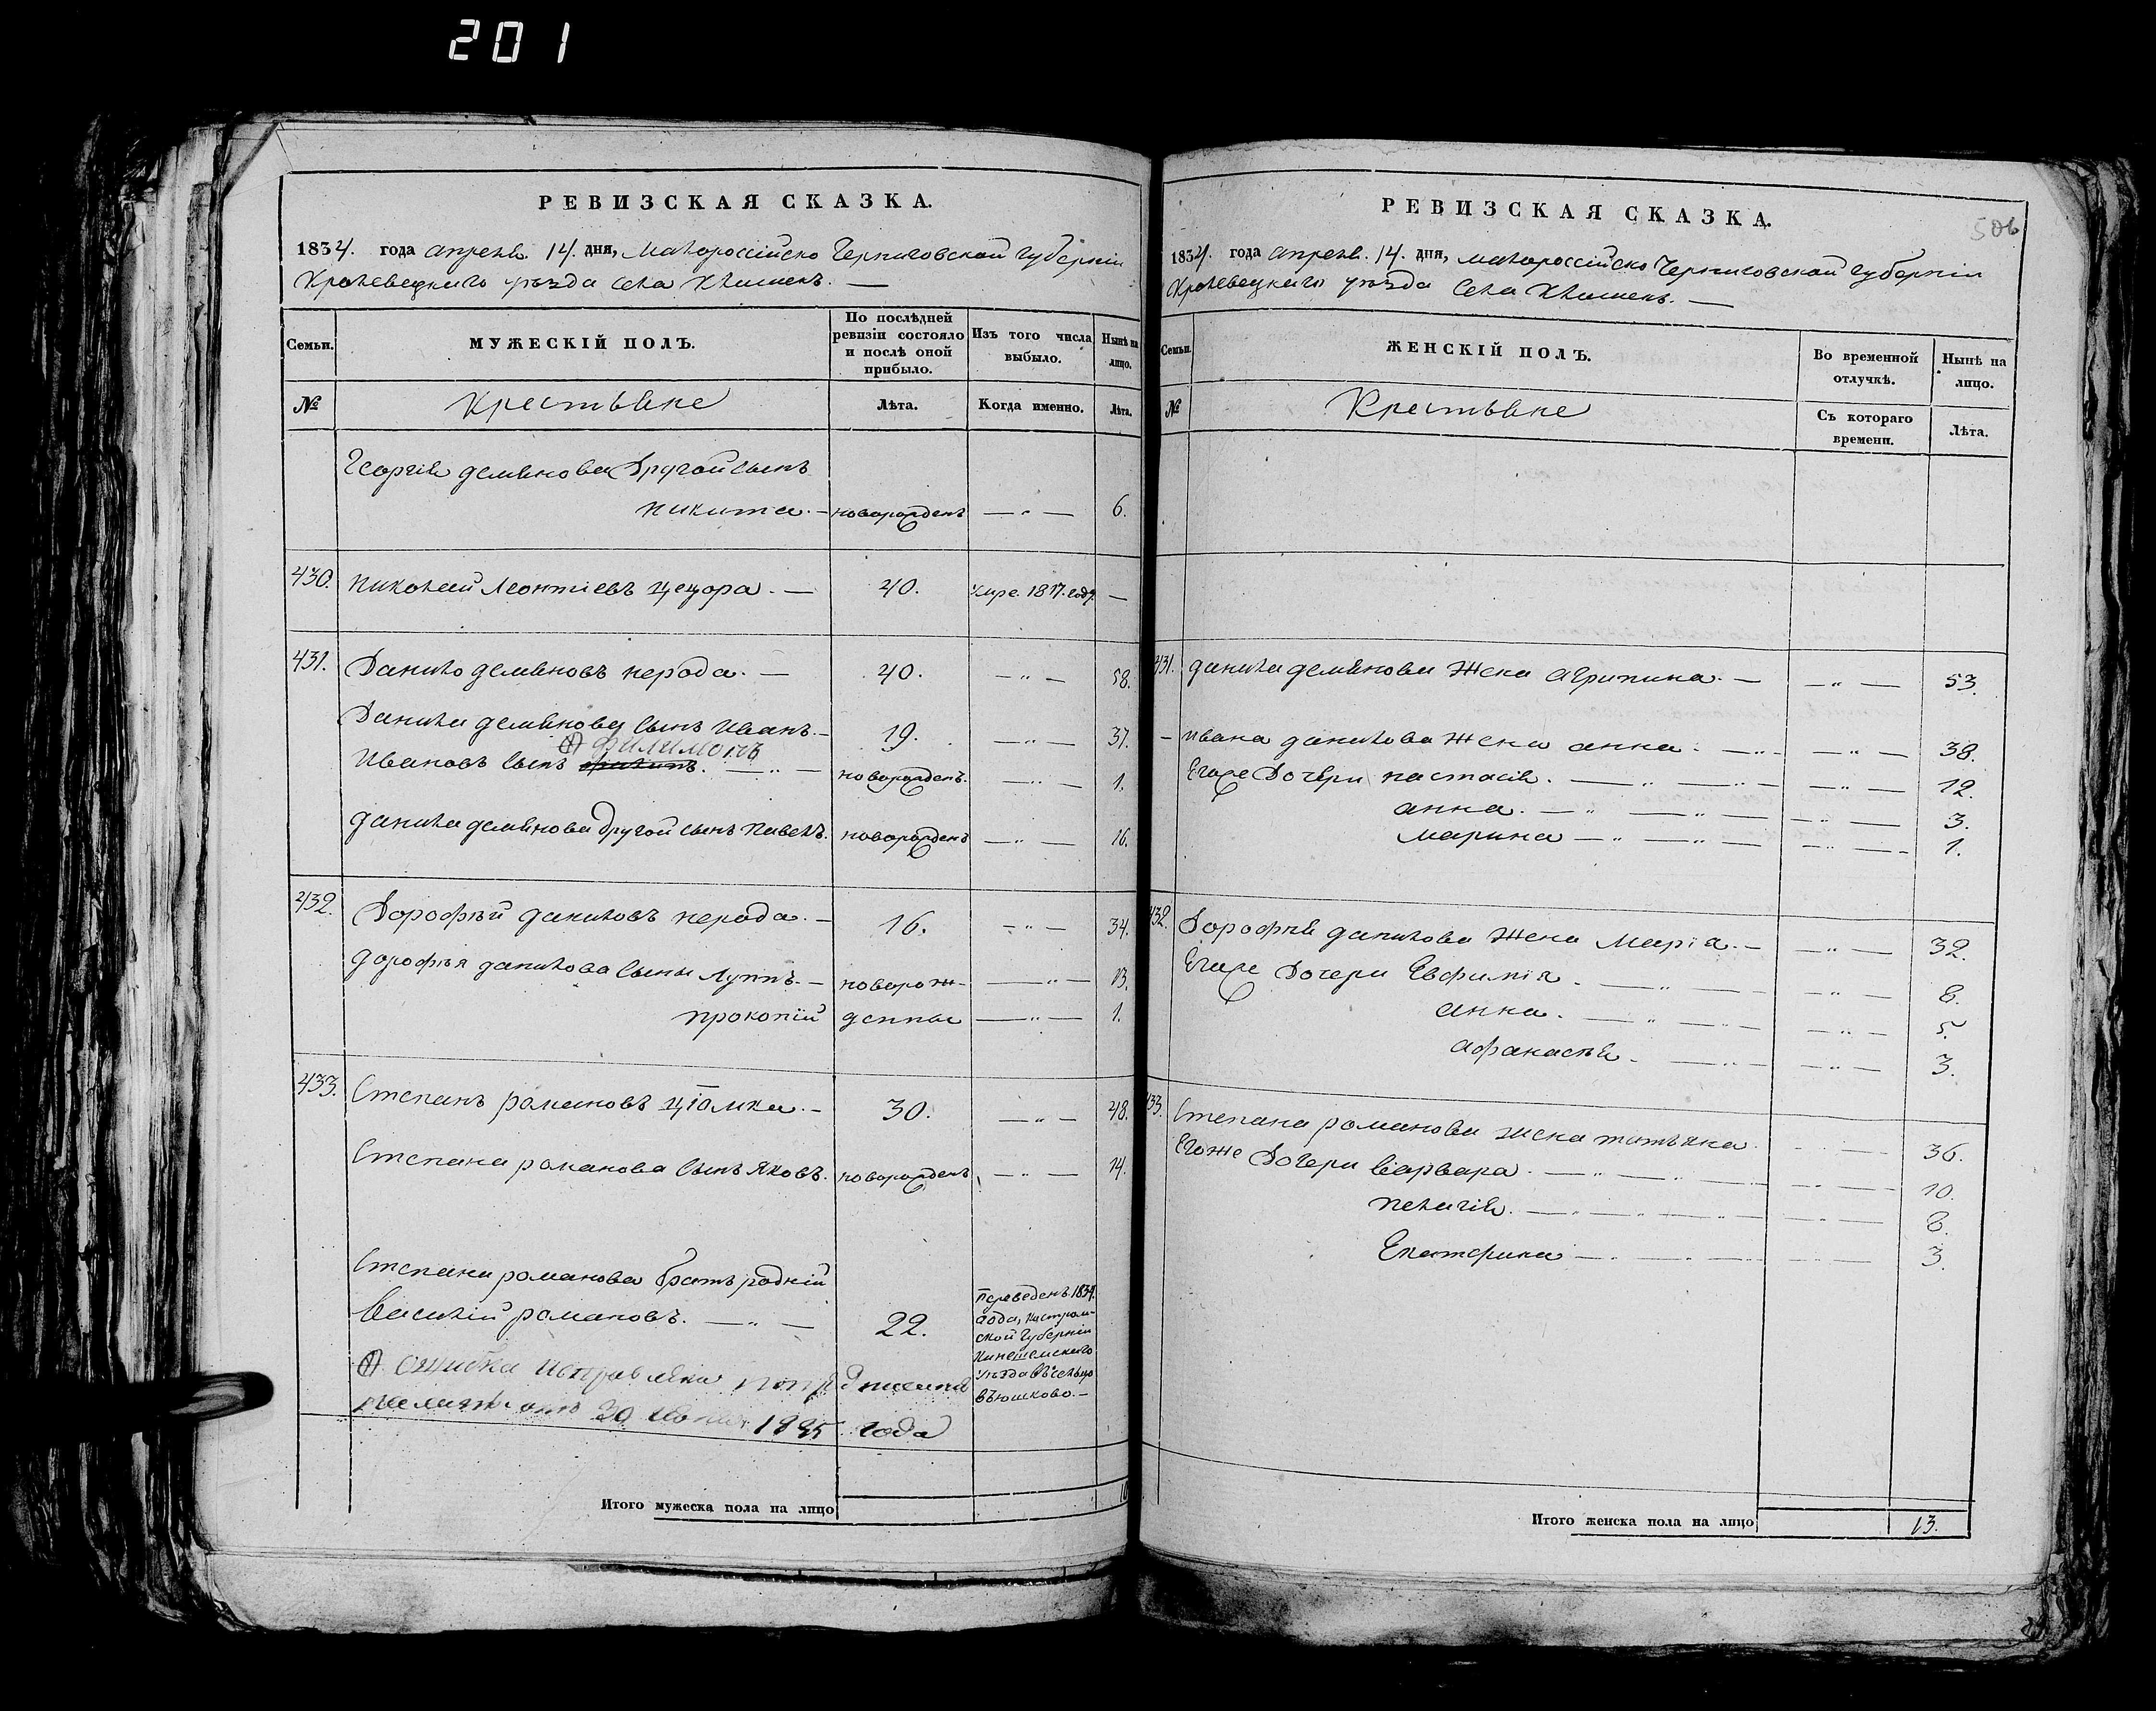 201
РЕВИЗСКАЯ СКАЗКА.
1834. года апреля. 14. дня, Малороссійско Черниговской губерніи
Кролевецкаго уѣзда села Клишекъ. —
Семьи. МУЖЕСКІЙ ПОЛЪ. По послѣдней ревизіи состояло и послѣ оной прибыло. Изъ того числа выбыло. Нынѣ на лицо.
№ Крестьяне Лѣта. Когда именно. Лѣта.
Георгія демянова Другой сынъ
никита. — новорожденъ — „ — 6.
430. николай Леонтіевъ цецора. — 40. 1817. году —
431. Данило демяновъ нерода. — 40. — „ — 58.
Данила демянова сынъ иванъ. — 19. — „ — 37.
филимонъ
Ивановъ сынъ — „ — новорожденъ. — „ — 1.
данила демянова другой сынъ павелъ. новорожденъ — „ — 16.
432. Дорофѣй даниловъ нерода. — 16. — „ — 34.
дорофѣя данилова сыны Луппъ. — новорож- — „ — 13.
прокопій денные — „ — 1.
433. Степанъ романовъ цюмка. — 30. — „ — 48.
Степана романова сынъ яковъ. новорожденъ — „ — 14.
Степана романова братъ родній
Василій романовъ. — „ — 22.
Переведенъ 1834.
года, Костром-
ской губерніи
Кинешемскаго
уѣзда въ сельцо
вьюшково. —
ошибка исправлена по
отъ 30 1835 года
Итого мужеска пола на лицо
РЕВИЗСКАЯ СКАЗКА.
506
1834. года апреля. 14. дня, малороссійско Черниговской губерніи
Кролевецкаго уѣзда села Клишекъ. —
Семьи. ЖЕНСКІЙ ПОЛЪ. Во временной отлучкѣ. Нынѣ на лицо.
№ Крестьяне Съ котораго времени. Лѣта.
431. данила демянова жена агрипина. — — „ — 53.
— ивана данилова жена анна. — „ — — „ — 38.
Егоже Дочери настасія. — „ — „ — — „ — 12.
анна. — „ — „ — — „ — 3.
марина — „ — „ — — „ — 1.
432. Дорофѣя данилова жена Марія. — — „ — 32.
Егоже Дочери Евфимія. — „ — — „ — 8.
анна. — „ — „ — — „ — 5.
афанасія. — „ — — „ — 3.
433. Степана романова жена татьяна. — „ — 36.
Егоже Дочери Варвара. — „ — „ — — „ — 10.
пелагія. — „ — „ — — „ — 8.
Екатерина — „ — „ — — „ — 3.
Итого женска пола на лицо 13.